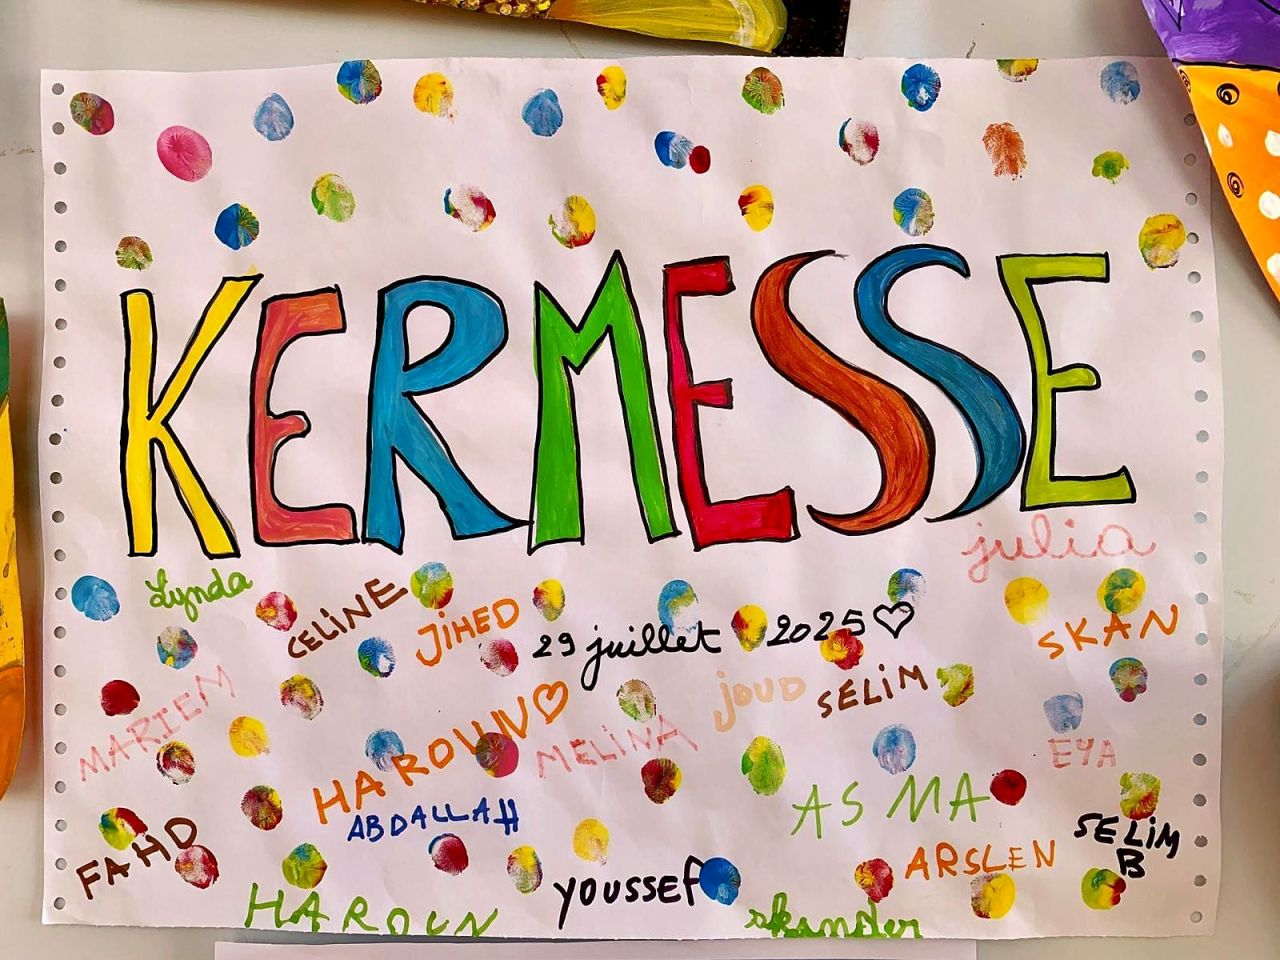 KERMESSE
julia
Lynda
CELINE
JIHED
29 juillet 2025
SKAN
MARIEM
HAROUN
MELINA
joud
SELIM
EYA
ABDALLAH
ASMA
SELIM B
FAHD
ARSLEN
HAROUN
YOUSSEF
skander